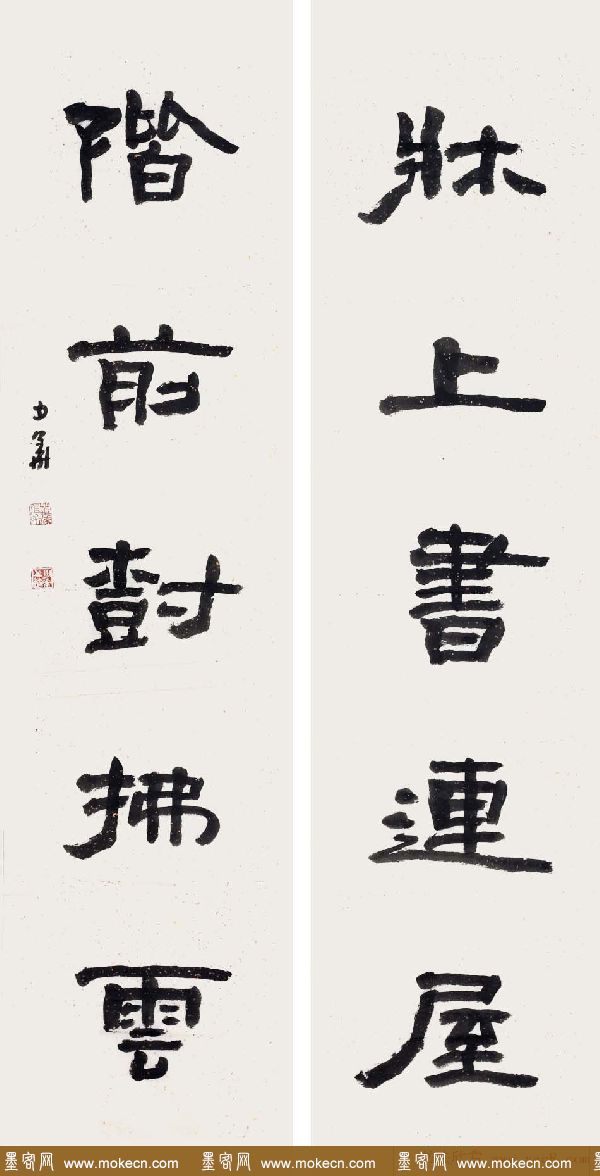 牀上書連屋
階前樹拂雲
墨客网 www.mokecn.com 墨客网 www.mokecn.com 墨客网 www.mokecn.com